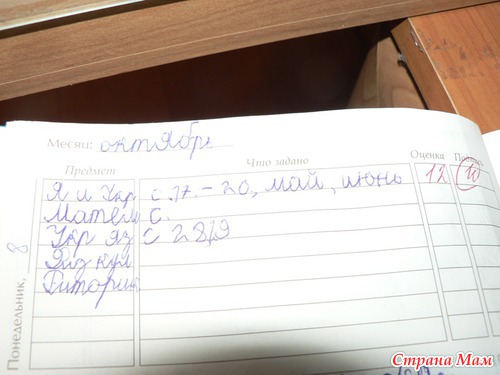 Месяц: октябрь
Предмет Что задано Оценка Подпись
Я и Укр с.17.-20, май, июнь 12 10
Матем с.
Укр яз с 28,9
Физ кул
Риторика
Понедельник, 8
Страна Мам